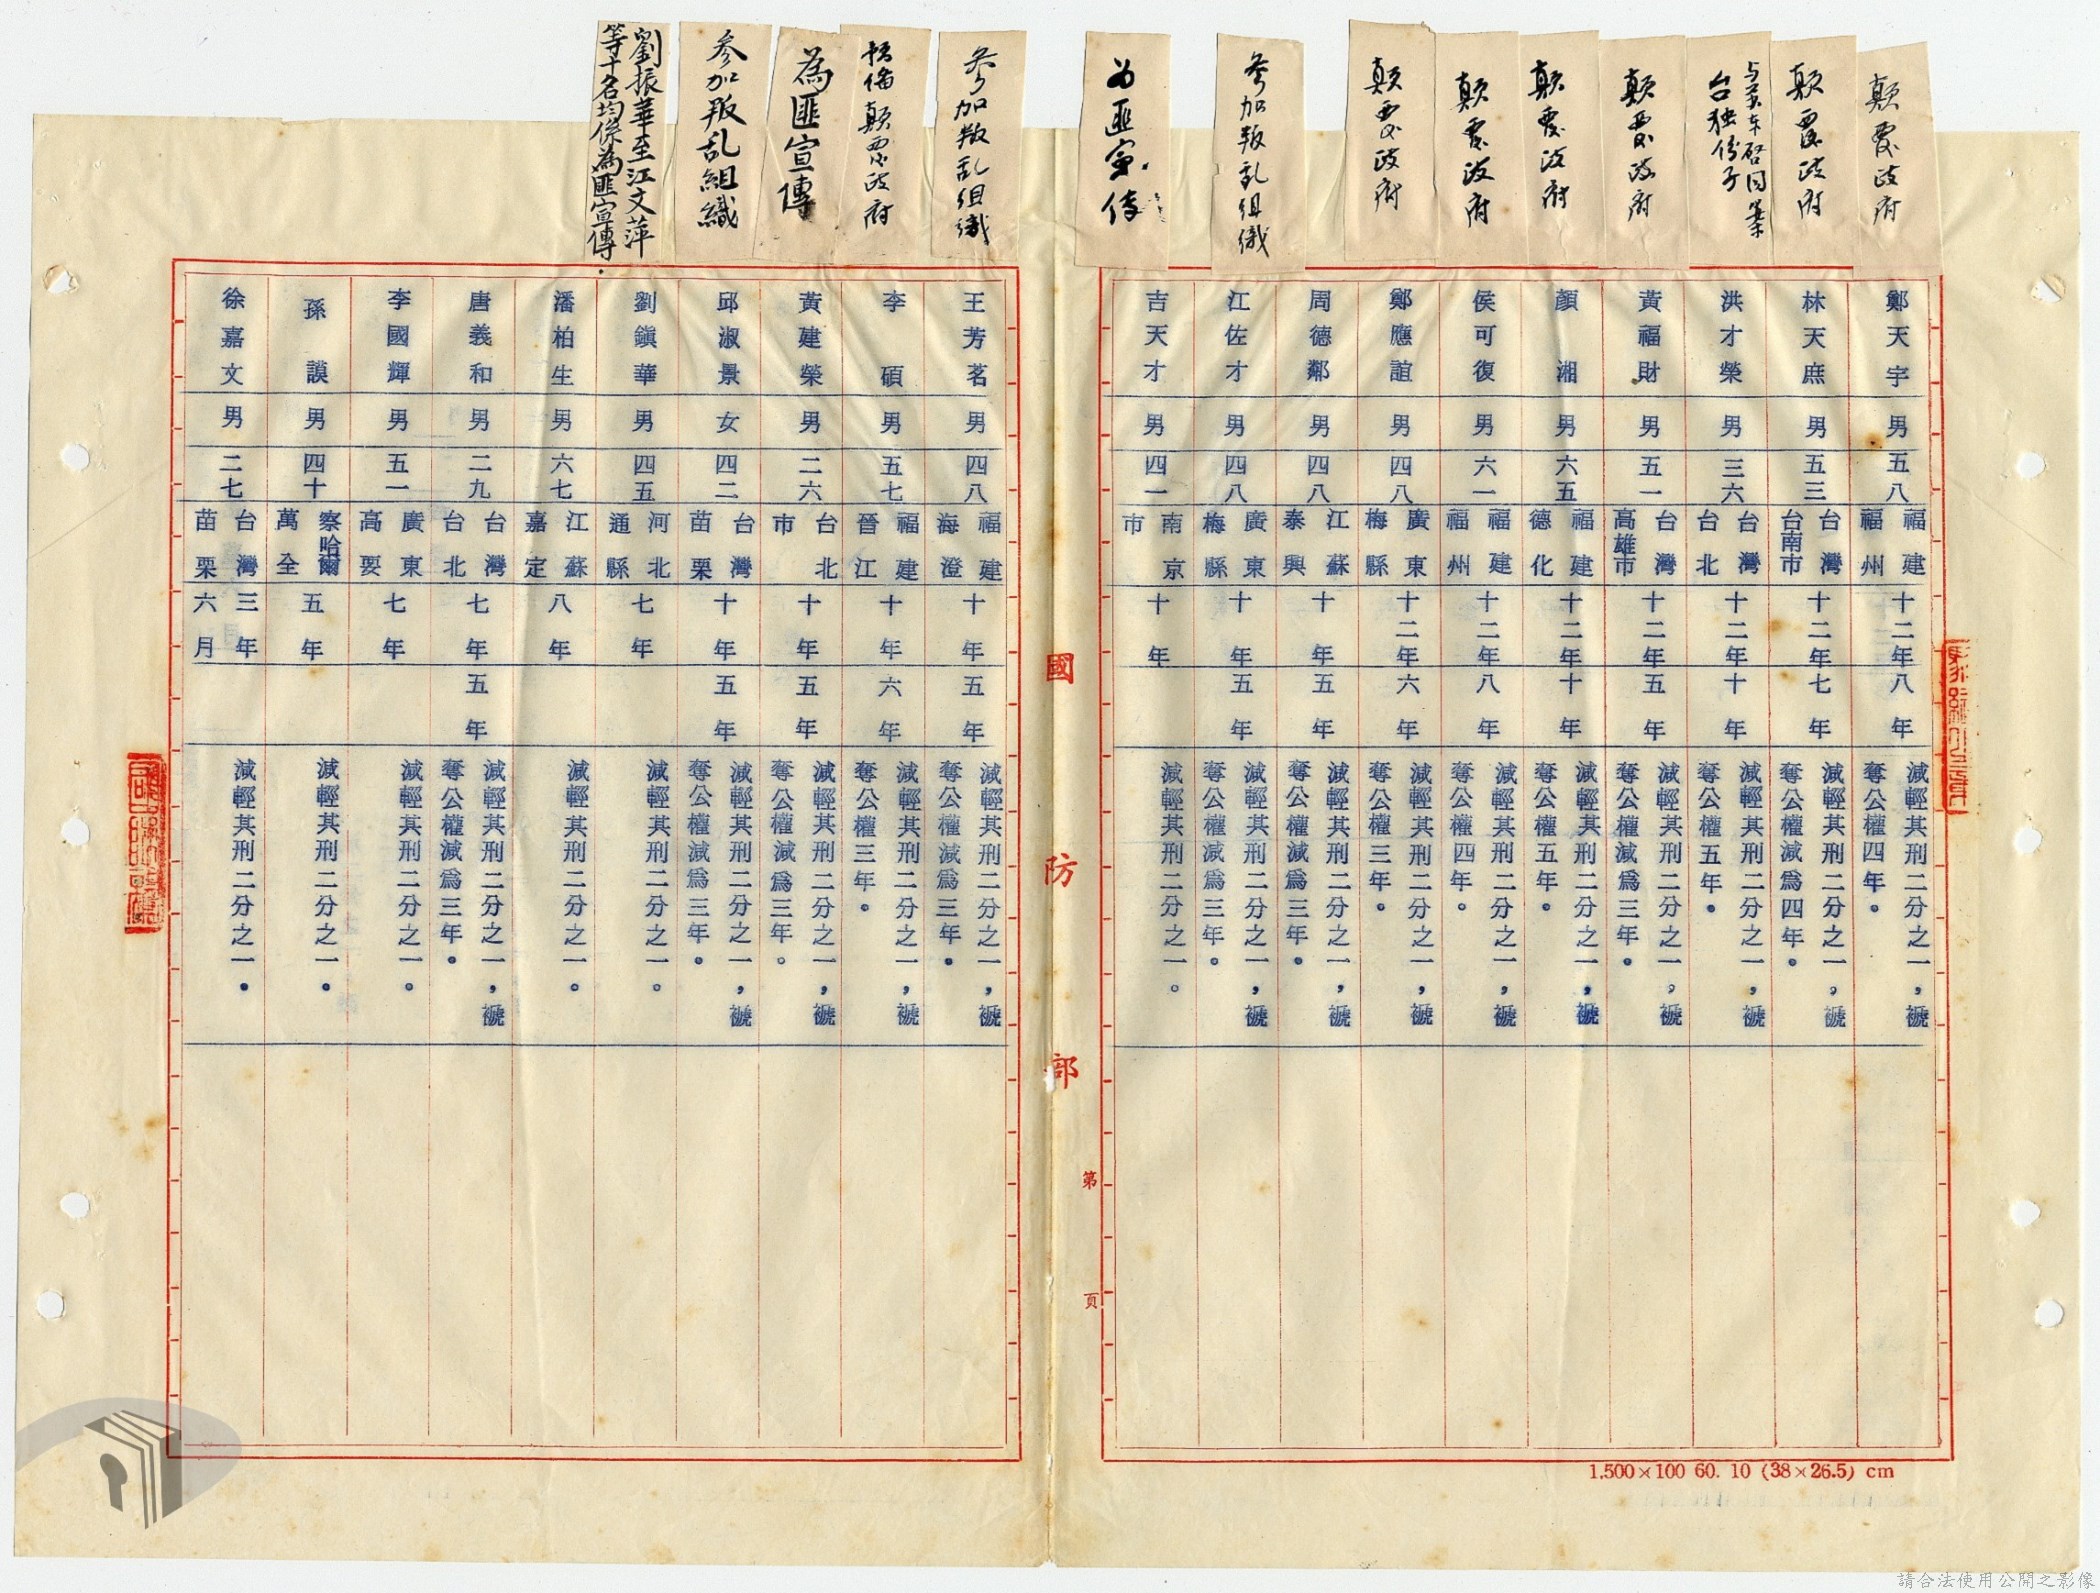 顛覆政府
顛覆政府
与吴东啓同案
台独份子
顛覆政府
顛覆政府
顛覆政府
顛覆政府
參加叛乱组織
为匪宣传
參加叛乱组織
預備顛覆政府
為匪宣傳
參加叛乱組織
劉振華至江文萍
等十名均係為匪宣傳
鄭天宇 男 五八 福建福州 十二年 八年 減輕其刑二分之一,褫奪公權四年。
林天庶 男 五三 台灣台南市 十二年 七年 減輕其刑二分之一,褫奪公權減為四年。
洪才榮 男 三六 台灣台北 十二年 十年 減輕其刑二分之一,褫奪公權五年。
黃福財 男 五一 台灣高雄市 十二年 五年 減輕其刑二分之一,褫奪公權減為三年。
顏湘 男 六五 福建德化 十二年 十年 減輕其刑二分之一,褫奪公權五年。
侯可復 男 六一 福建福州 十二年 八年 減輕其刑二分之一,褫奪公權四年。
鄭應誼 男 四八 廣東梅縣 十二年 六年 減輕其刑二分之一,褫奪公權三年。
周德鄰 男 四八 江蘇泰興 十年 五年 減輕其刑二分之一,褫奪公權減為三年。
江佐才 男 四八 廣東梅縣 十年 五年 減輕其刑二分之一,褫奪公權減為三年。
吉天才 男 四一 南京市 十年 減輕其刑二分之一。
國防部
第 頁
王芳茗 男 四八 福建海澄 十年 五年 減輕其刑二分之一,褫奪公權減為三年。
李碩 男 五七 福建晉江 十年 六年 減輕其刑二分之一,褫奪公權三年。
黃建榮 男 二六 台北市 十年 五年 減輕其刑二分之一,褫奪公權減為三年。
邱淑景 女 四二 台灣苗栗 十年 五年 減輕其刑二分之一,褫奪公權減為三年。
劉鎭華 男 四五 河北通縣 七年 減輕其刑二分之一。
潘柏生 男 六七 江蘇嘉定 八年 減輕其刑二分之一。
唐義和 男 二九 台灣台北 七年 五年 減輕其刑二分之一,褫奪公權減為三年。
李國輝 男 五一 廣東高要 七年 減輕其刑二分之一。
孫謨 男 四十 察哈爾萬全 五年 減輕其刑二分之一。
徐嘉文 男 二七 台灣苗栗 三年六月 減輕其刑二分之一。
1.500×100 60. 10 (38×26.5) cm
請合法使用公開之影像